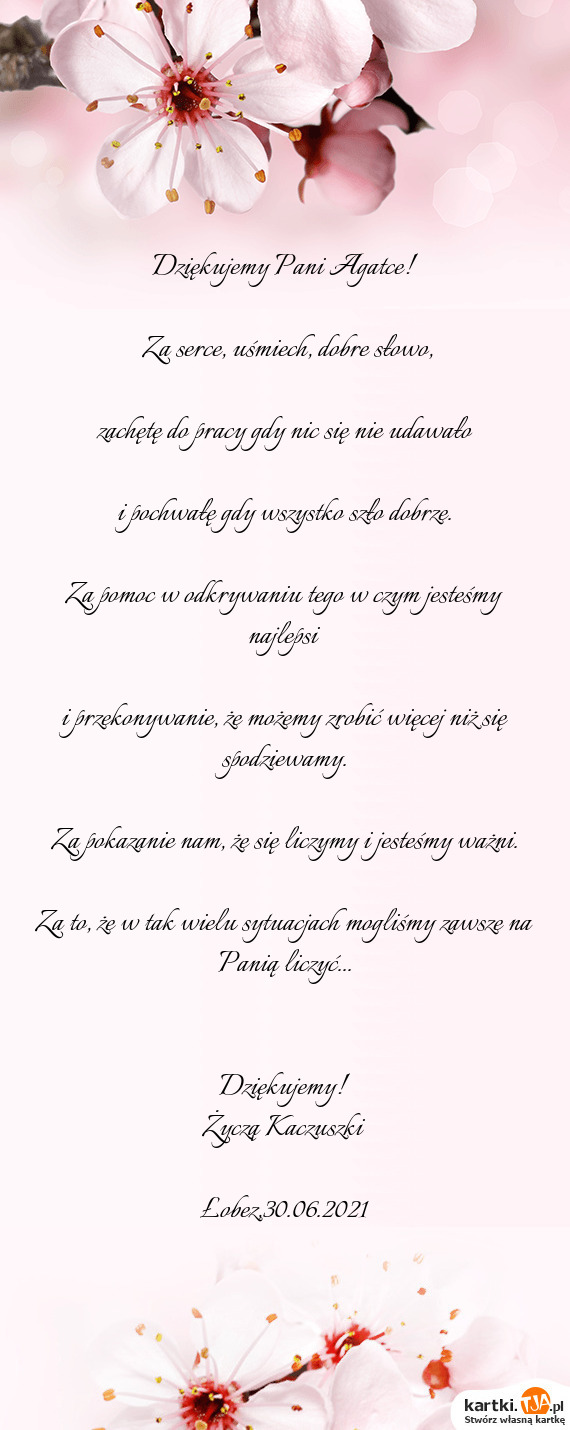 Dziękujemy Pani Agatce!
Za serce, uśmiech, dobre słowo,
zachętę do pracy gdy nic się nie udawało
i pochwałę gdy wszystko szło dobrze.
Za pomoc w odkrywaniu tego w czym jesteśmy
najlepsi
i przekonywanie, że możemy zrobić więcej niż się
spodziewamy.
Za pokazanie nam, że się liczymy i jesteśmy ważni.
Za to, że w tak wielu sytuacjach mogliśmy zawsze na
Panią liczyć...
Dziękujemy!
Życzą Kaczuszki
Łobez,30.06.2021
kartki.TJA.pl
Stwórz własną kartkę